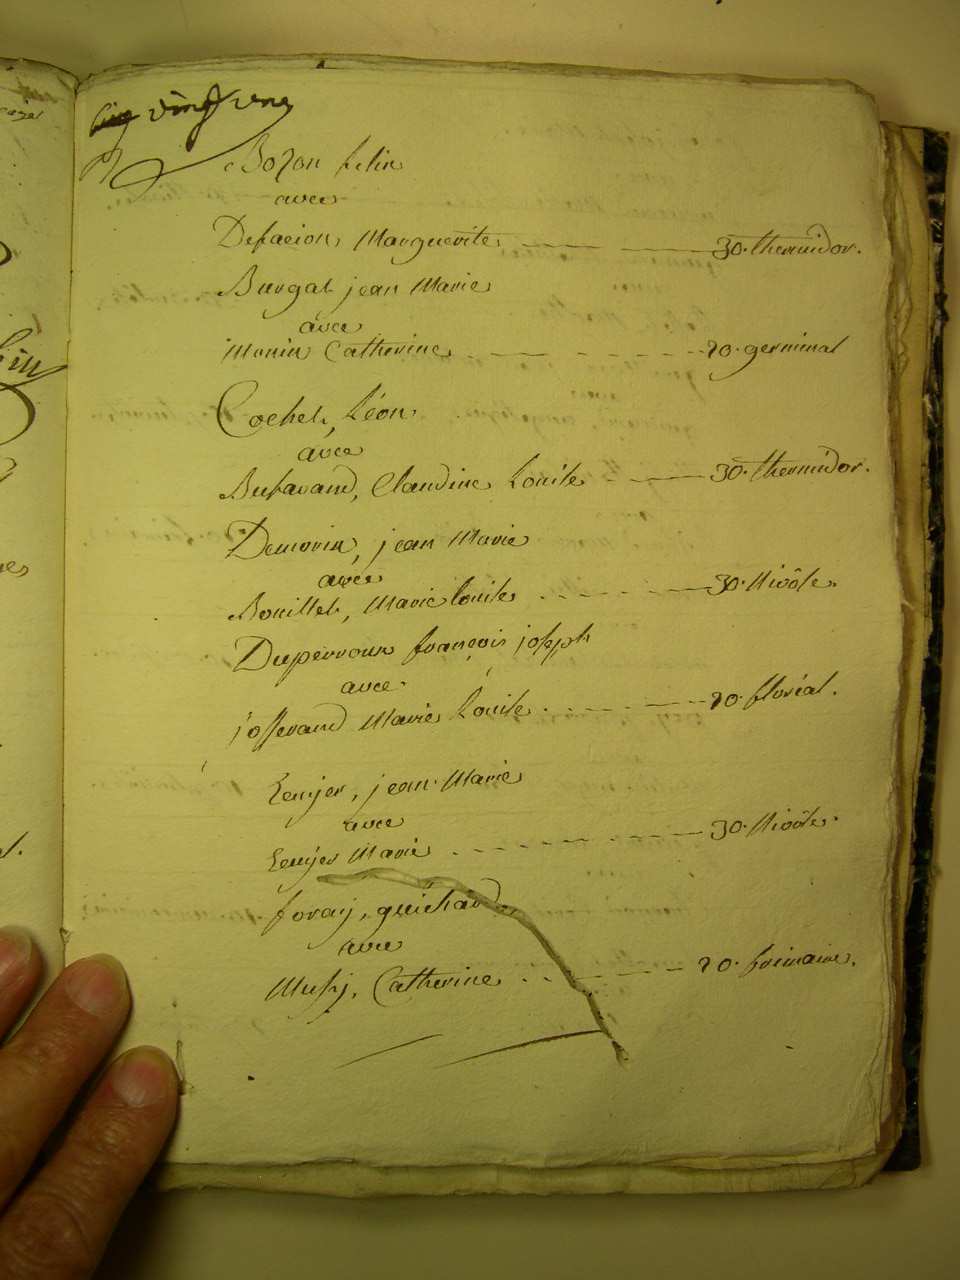 vingt un
Bozon felix
avec
Defaeion Marguerite 30. thermidor.
Burgat jean Marie
avec
Monin Catherine 20. germinal
Cochet, Léon
avec
Bufavand, Claudine Louise 30. thermidor.
Demorin, jean Marie
avec
Bouillet, Marie louise 30. Nivôse.
Duperroux françois joseph
avec
josserand Marie Louise 20. floréal.
jean Marie
avec
Marie 30. Nivôse.
foray, guichard
avec
Mussy, Catherine 20. frimaire.